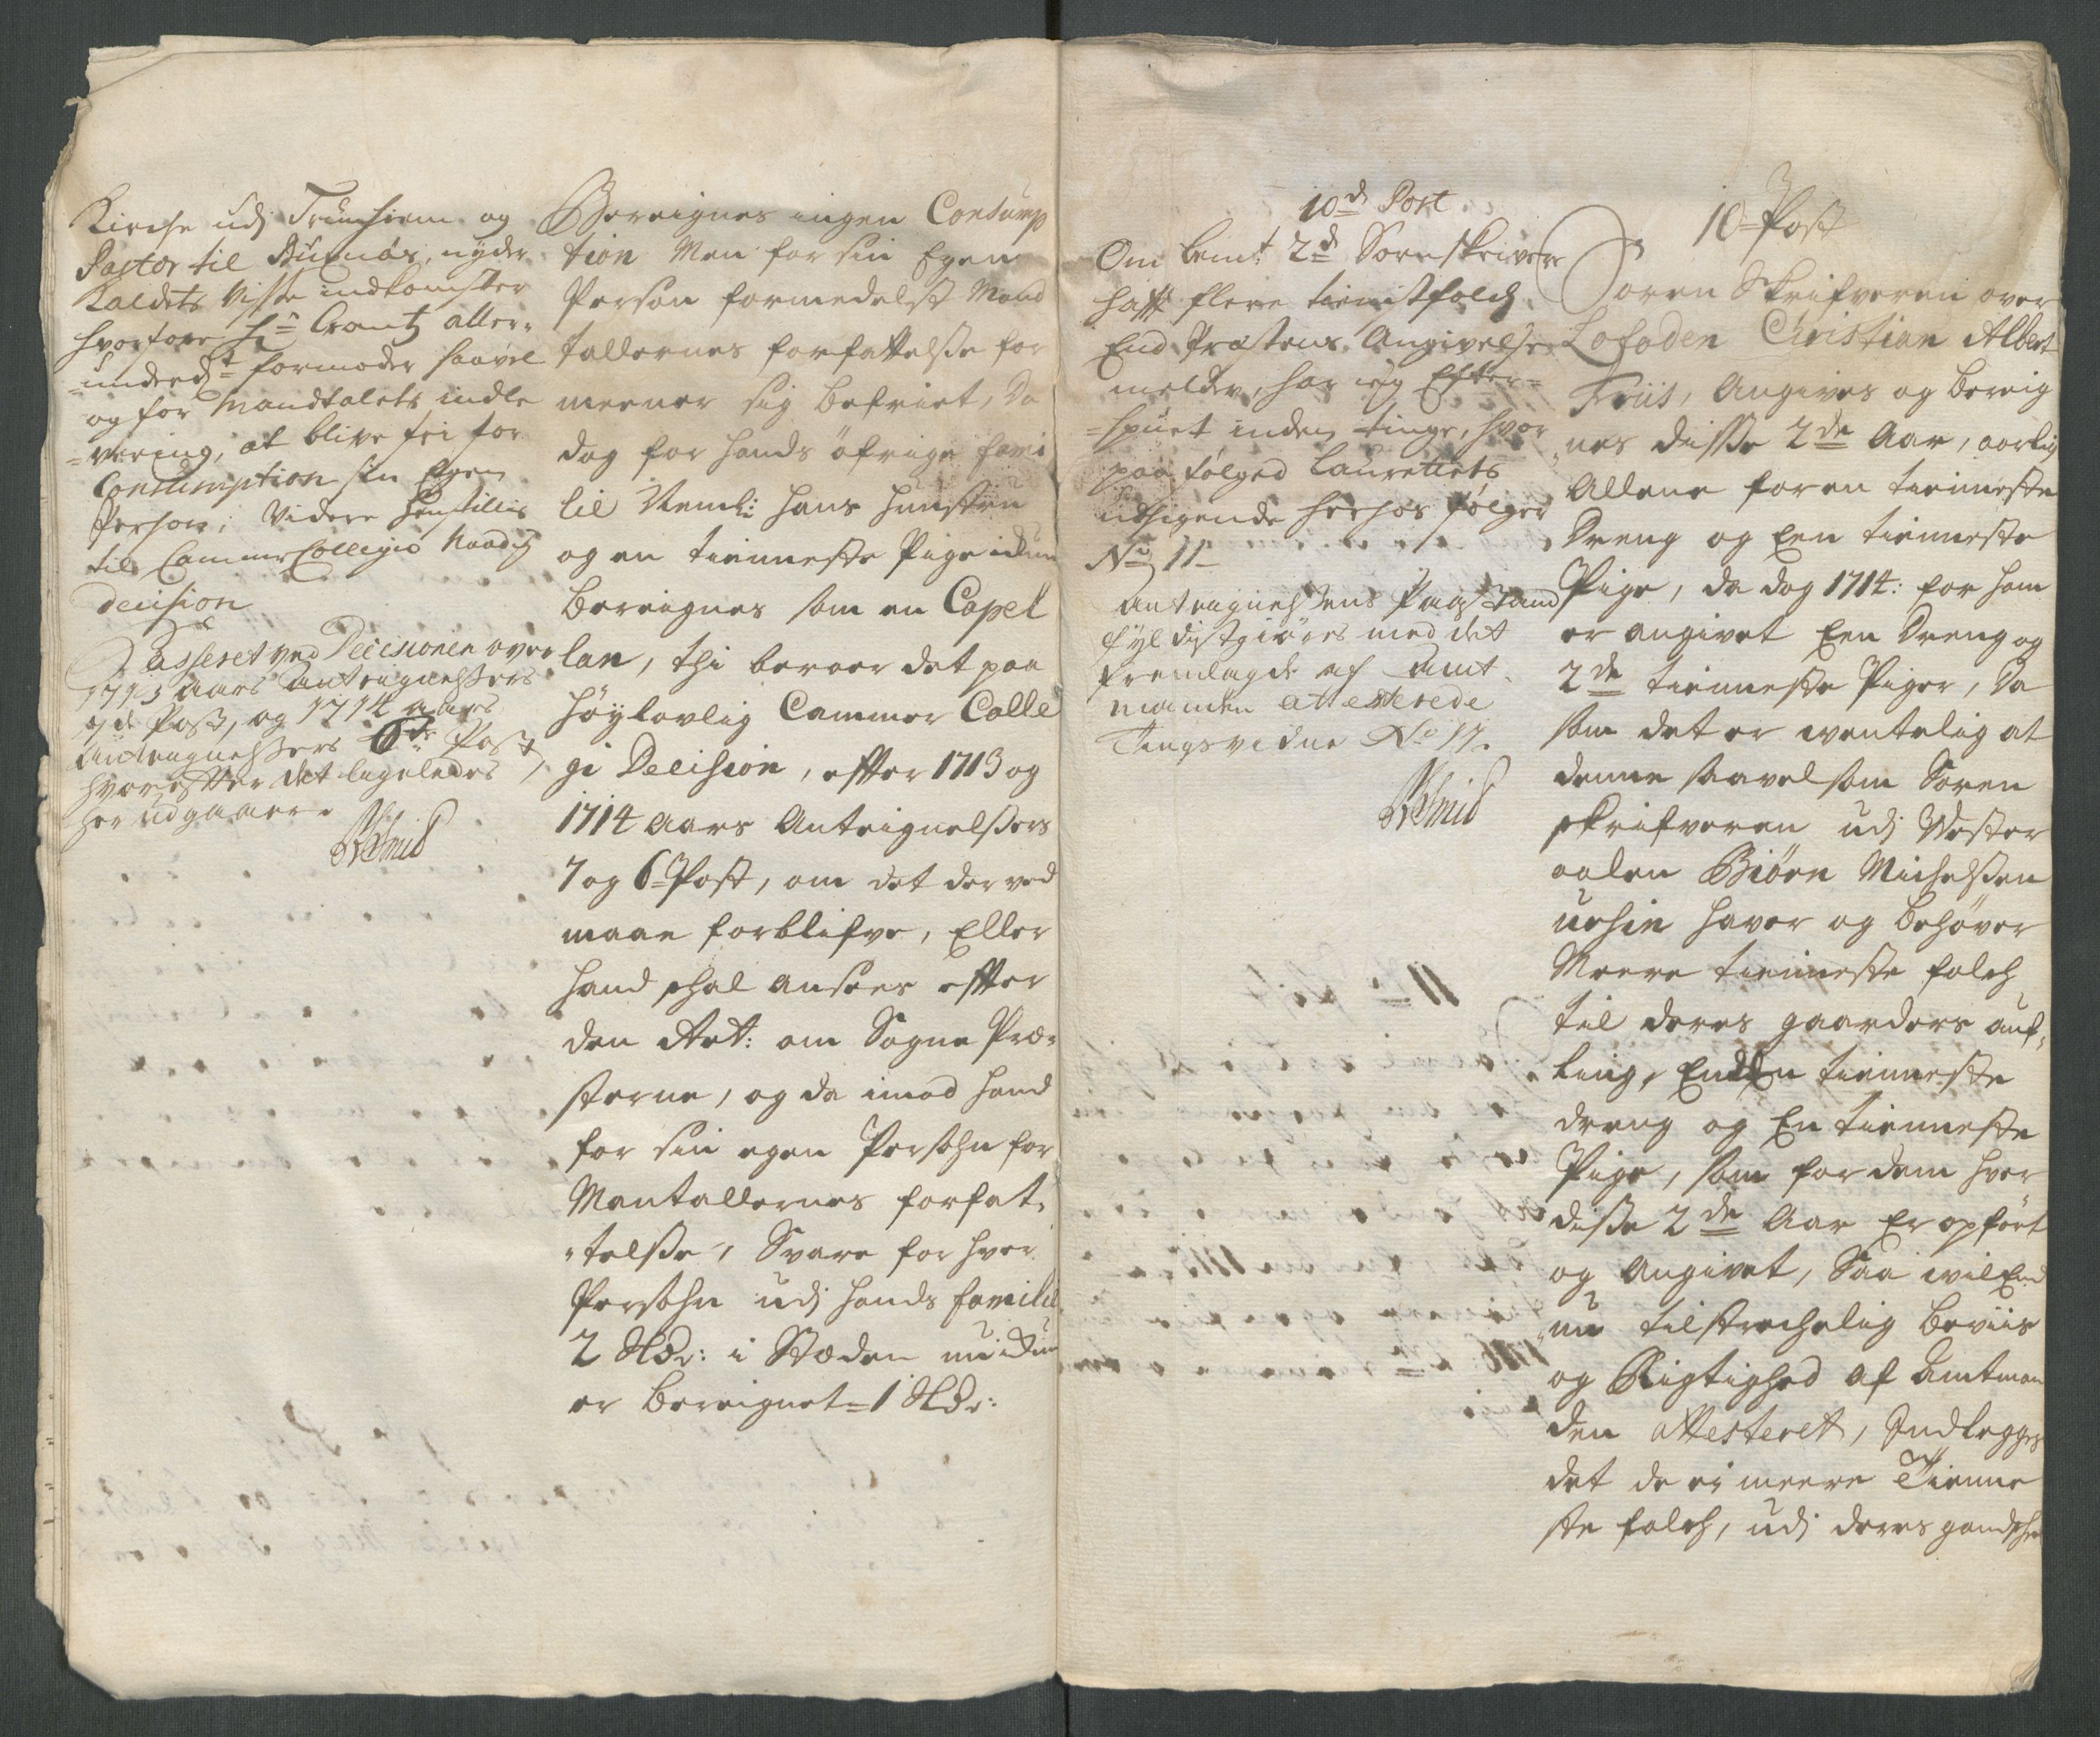 Kirche udj Trunhiem og
Pastor til Buxnäs, nyder
Kaldets Visse indkomster
hvorfore Hr Crantz aller-
=underdt formoder saavel
og for Mandtalets indle
=vering, at blive fri for
Consumption sin Egen
Person; Videre henstilles
til CammerCollegio Naadig
decision
Passeret ved Decisionen over
1713 aars Antegnelssers
7de Post, og 1714 aars
Antegnelssers 6de Post,
hvorefter det ligeledes
her udgaaer.
Bereignes ingen Consump
tion Men for sin Egen
Person formedelst Mand
tallernes forfattelsse for
meener sig befriet, Da
dog for hands öfrige fami
lie Neml: hans hustru
og en tienneste Pige ickun
bereignes som en Capel
lan, thi beroer det paa
höylovlig Cammer Colle
gi Decision, effter 1713 og
1714 Aars Anteignelssers
7 og 6 Post, om det derved
maae forblifve, Eller
hand schal ansees effter
den Art: om Sogne Præ-
sterne, og da imod hand
for sin egen Persohn for
Mantallernes forfat-
telsse, Svare for hver
Persohn udj hands familie
2 Rdr: i Stæden nu ickun
er bereignet = 1 Rdr:
10d Post
Om bemt 2d Sorenskrivere
hafft flere tienistfolch
End Præstens Angivelse
melder, har ieg Efter-
=spurt inden tinge, hvor
paa følged Laurettets
udsigende herhos følger
No 11
Antegnelssens Paastand
fyldistgiøres med det
fremlagde af Amt
manden attesterede
Tingsvidne No 17.
10 Post
Soren Skrifveren over
Lofoden Christian Albert
Friis, Angives og bereig
nes disse 2de Aar, aarlig
Allene for en tienneste
Dreng og Een tienneste
Pige, da dog 1714: for ham
er angivet Een Dreng og
2de tienneste Piger, Da
som det er wentelig at
denne saavelsom Soren
skrifveren udj Wester
aalen Biörn Michelssen
uchin haver og behöver
Meere tienneste folch
til deres gaarders auf-
ling, End En tienneste
dreng og En tienneste
Pige, som for dem hver
disse 2de Aar Er opfört
og Angivet, Saa wil End
nu tilstrechelig beviis
og Rigtighed af Amtman
den attesteret, Indlegges
det de ei meere Tienne
ste folch, udj deres gandsche